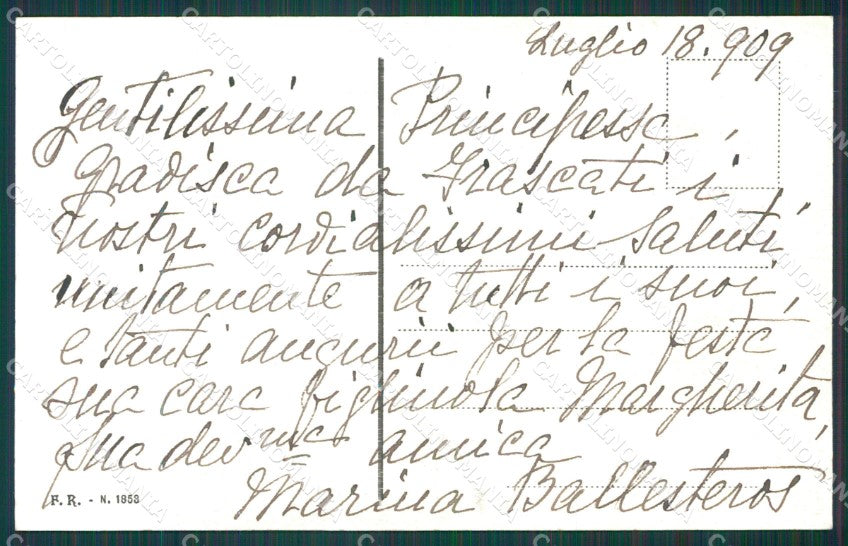 Luglio 18.909
Gentilissima Principessa,
Gradisca da Frascati i
nostri cordialissimi saluti
unitamente a tutti i suoi,
e tanti augurii per la festa
sua cara figliuola Margherita,
Sua dev.ma amica
Marina Ballesteros
F. R. - N. 1853
CARTOLINOMANIA